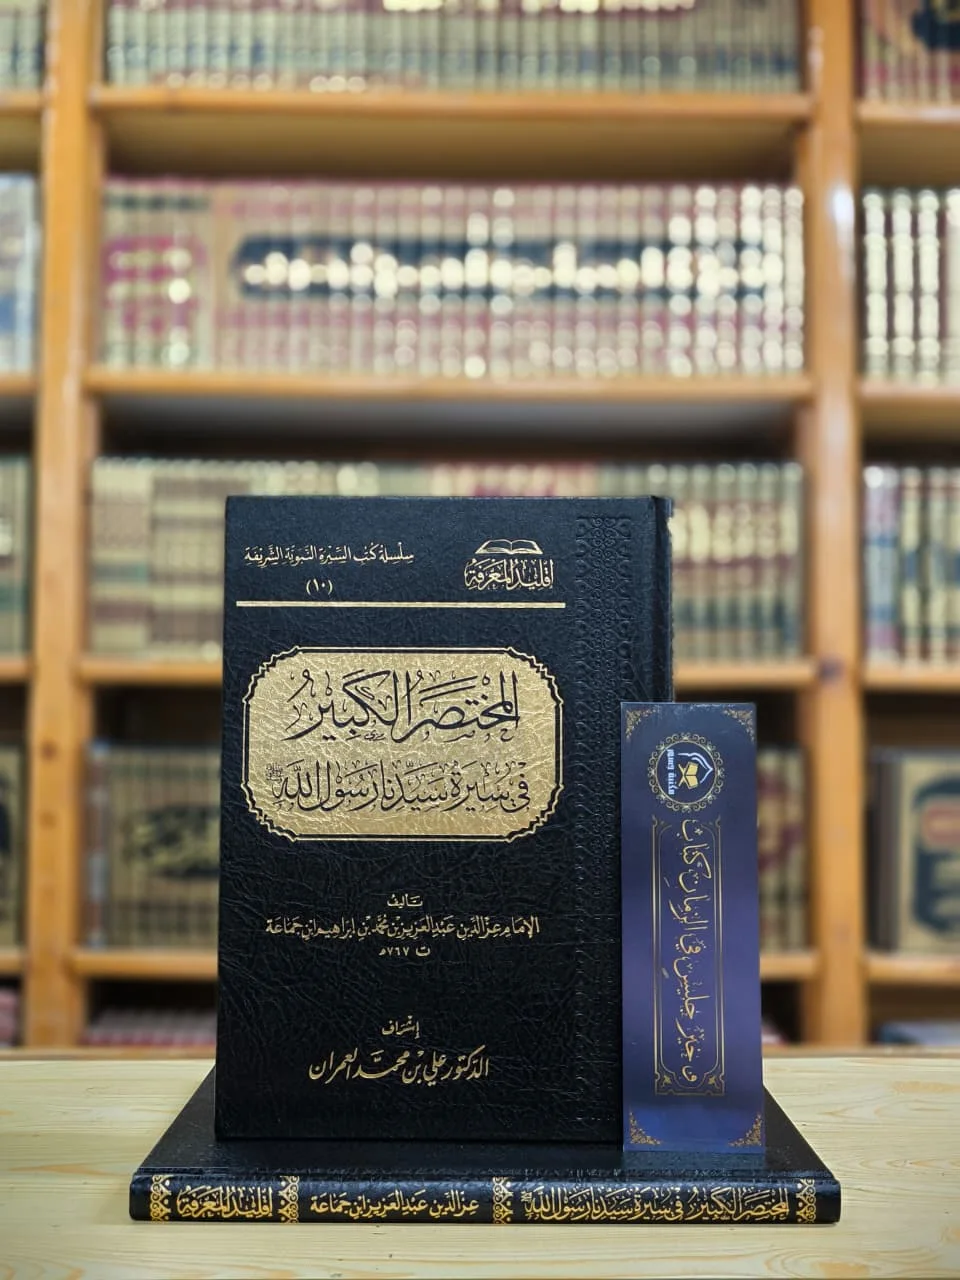 إقليد المعرفة
سلسلة كتب السيرة النبوية الشريفة
(١٠)
المختصر الكبير
في سيرة سيدنا رسول الله ﷺ
تأليف
الإمام عز الدين عبد العزيز بن محمد بن إبراهيم ابن جماعة
ت ٧٦٧هـ
إشراف
الدكتور علي بن محمد العمران
وخير جليس في الزمان كتاب
المختصر الكبير في سيرة سيدنا رسول الله ﷺ
عز الدين عبد العزيز ابن جماعة
إقليد المعرفة